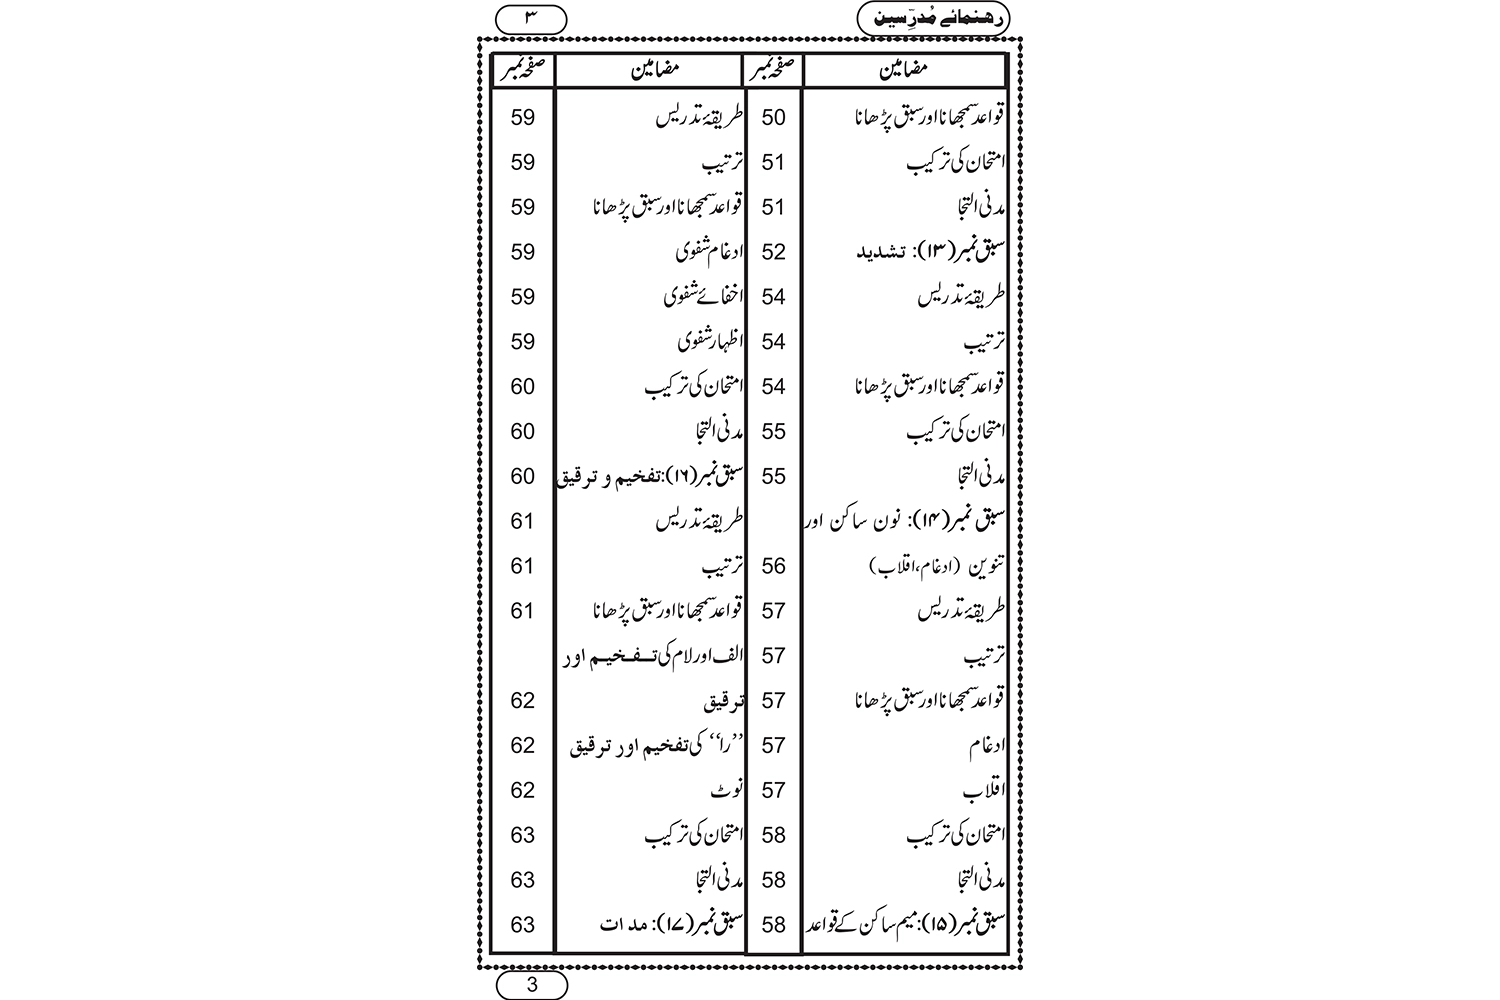 رهنمائے مُدرِّسین
۳
مضامین صفحہ نمبر
قواعد سمجھانا اور سبق پڑھانا 50
امتحان کی ترکیب 51
مدنی التجا 51
سبق نمبر (۱۳): تشدید 52
طریقۂ تدریس 54
ترتیب 54
قواعد سمجھانا اور سبق پڑھانا 54
امتحان کی ترکیب 55
مدنی التجا 55
سبق نمبر (۱۴): نون ساکن اور
تنوین (ادغام، اقلاب) 56
طریقۂ تدریس 57
ترتیب 57
قواعد سمجھانا اور سبق پڑھانا 57
ادغام 57
اقلاب 57
امتحان کی ترکیب 58
مدنی التجا 58
سبق نمبر (۱۵): میم ساکن کے قواعد 58
مضامین صفحہ نمبر
طریقۂ تدریس 59
ترتیب 59
قواعد سمجھانا اور سبق پڑھانا 59
ادغام شفوی 59
اخفائے شفوی 59
اظہار شفوی 59
امتحان کی ترکیب 60
مدنی التجا 60
سبق نمبر (۱۶): تفخیم و ترقیق 60
طریقۂ تدریس 61
ترتیب 61
قواعد سمجھانا اور سبق پڑھانا 61
الف اور لام کی تفخیم اور
ترقیق 62
’’را‘‘ کی تفخیم اور ترقیق 62
نوٹ 62
امتحان کی ترکیب 63
مدنی التجا 63
سبق نمبر (۱۷): مدات 63
3